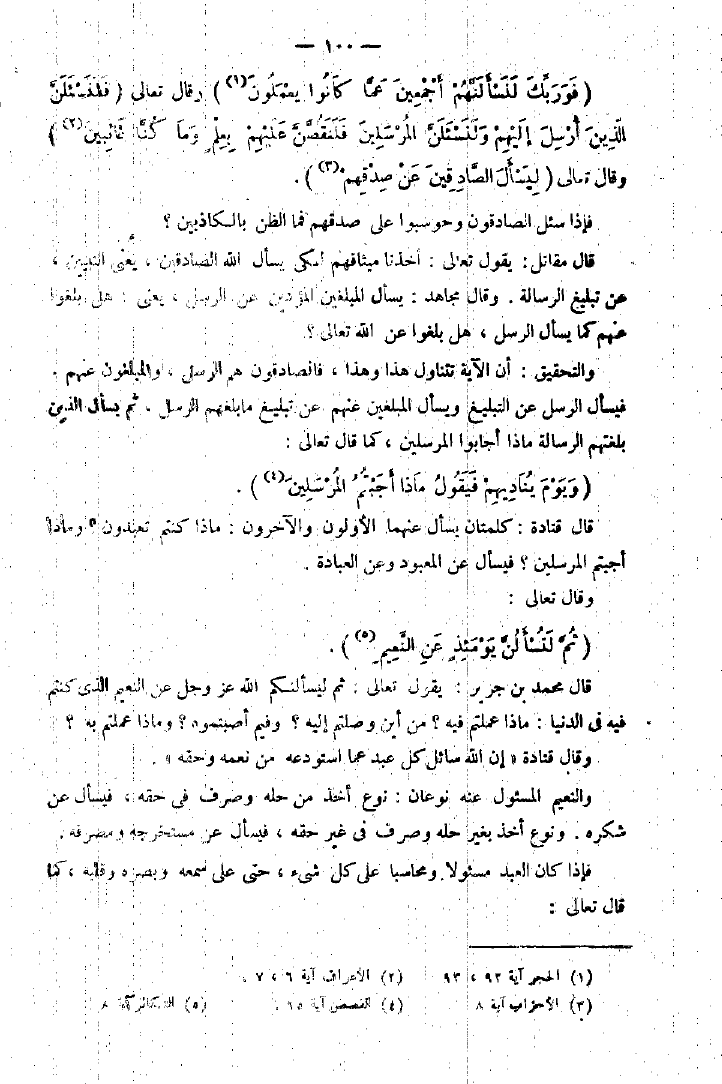 — ١٠٠ —
( فَوَرَبِّكَ لَنَسْأَلَنَّهُمْ أَجْمَعِينَ عَمَّا كَانُوا يعْمَلُونَ(١) ) وقال تعالى ( فَلَنَسْئَلَنَّ
الَّذِينَ أُرْسِلَ إِلَيْهِمْ وَلَنَسْئَلَنَّ المُرْسَلِينَ فَلَنَقُصَّنَّ عَلَيْهِمْ بِعِلْمٍ وَمَا كُنَّا غَائِبِينَ(٢) )
وقال تعالى ( لِيَسْأَلَ الصَّادِقِينَ عَنْ صِدْقِهِمْ(٣) ) .
فإذا سئل الصادقون وحوسبوا على صدقهم فما الظن بالكاذبين ؟
قال مقاتل : يقول تعالى : أخذنا ميثاقهم لكى يسأل الله الصادقين ، يعْنى النبيين ،
عن تبليغ الرسالة . وقال مجاهد : يسأل المبلغين المؤدين عن الرسل ، يعنى : هل بلغوا
عنهم كما يسأل الرسل ، هل بلغوا عن الله تعالى ؟
والتحقيق : أن الآية تتناول هذا وهذا ، فالصادقون هم الرسل ، والمبلغون عنهم .
فيسأل الرسل عن التبليغ ويسأل المبلغين عنهم عن تبليغ مابلغهم الرسل . ثم يسأل الذين
بلغتهم الرسالة ماذا أجابوا المرسلين ، كما قال تعالى :
( وَيَوْمَ يُنَادِيهِمْ فَيَقُولُ مَاذَا أَجَبْتُمُ المُرْسَلِينَ(٤) ) .
قال قتادة : كلمتان يسأل عنهما الأولون والآخرون : ماذا كنتم تعبدون ؟ وماذا
أجبتم المرسلين ؟ فيسأل عن المعبود وعن العبادة .
وقال تعالى :
( ثُمَّ لَتُسْأَلُنَّ يَوْمَئِذٍ عَنِ النَّعِيمِ(٥) ) .
قال محمد بن جرير : يقول تعالى : ثم ليسألنكم الله عز وجل عن النعيم الذى كنتم
فيه فى الدنيا : ماذا عملتم فيه ؟ من أين وصلتم إليه ؟ وفيم أصبتموه ؟ وماذا عملتم به ؟
وقال قتادة « إن الله سائل كل عبد عما استودعه من نعمه وحقه » .
والنعيم المسئول عنه نوعان : نوع أخذ من حله وصرف فى حقه ، فيسأل عن
شكره . ونوع أخذ بغير حله وصرف فى غير حقه ، فيسأل عن مستخرجه ومصرفه .
فإذا كان العبد مسئولا ومحاسبا على كل شىء ، حتى على سمعه وبصره وقلبه ، كما
قال تعالى :
(١) الحجر آية ٩٢ ، ٩٣ (٢) الأعراف آية ٦ ، ٧ .
(٣) الأحزاب آية ٨ (٤) القصص آية ٦٥ . (٥) التكاثر آية ٨